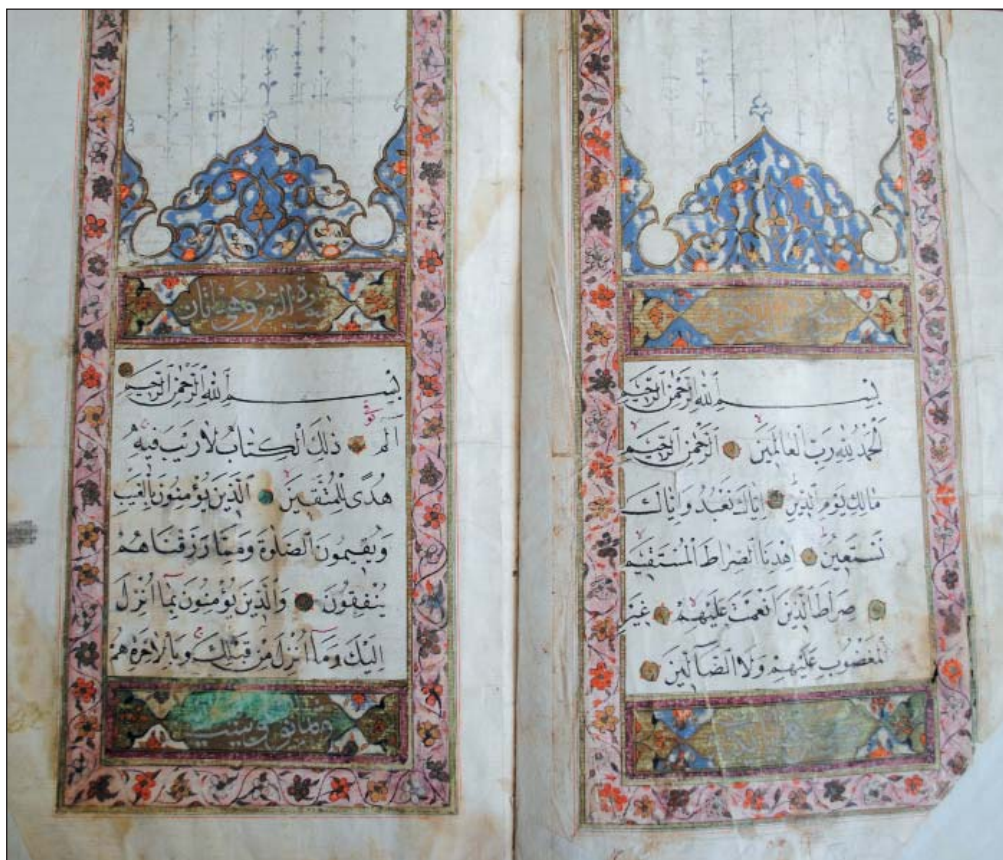 بِسْمِ اللّٰهِ الرَّحْمٰنِ الرَّحِيمِ
اَلْحَمْدُ لِلّٰهِ رَبِّ الْعَالَمِينَ الرَّحْمٰنِ الرَّحِيمِ
مَالِكِ يَوْمِ الدِّينِ اِيَّاكَ نَعْبُدُ وَاِيَّاكَ
نَسْتَعِينُ اِهْدِنَا الصِّرَاطَ الْمُسْتَقِيمَ
صِرَاطَ الَّذِينَ اَنْعَمْتَ عَلَيْهِمْ غَيْرِ
الْمَغْضُوبِ عَلَيْهِمْ وَلَا الضَّٓالِّينَ
سورة البقرة وهي مائتان
بِسْمِ اللّٰهِ الرَّحْمٰنِ الرَّحِيمِ
الٓمٓ ذٰلِكَ الْكِتَابُ لَا رَيْبَ فِيهِ
هُدًى لِلْمُتَّقِينَ اَلَّذِينَ يُؤْمِنُونَ بِالْغَيْبِ
وَيُقِيمُونَ الصَّلٰوةَ وَمِمَّا رَزَقْنَاهُمْ
يُنْفِقُونَ وَالَّذِينَ يُؤْمِنُونَ بِمَٓا اُنْزِلَ
اِلَيْكَ وَمَٓا اُنْزِلَ مِنْ قَبْلِكَ وَبِالْاٰخِرَةِ هُمْ